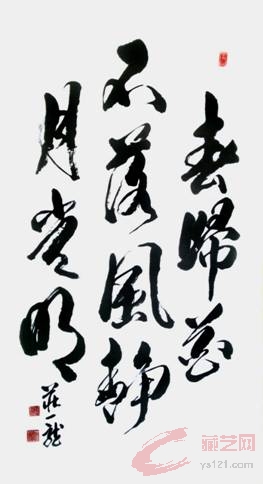 春歸花
不落風静
月常明
莊一龍
藏艺网
ys121.com